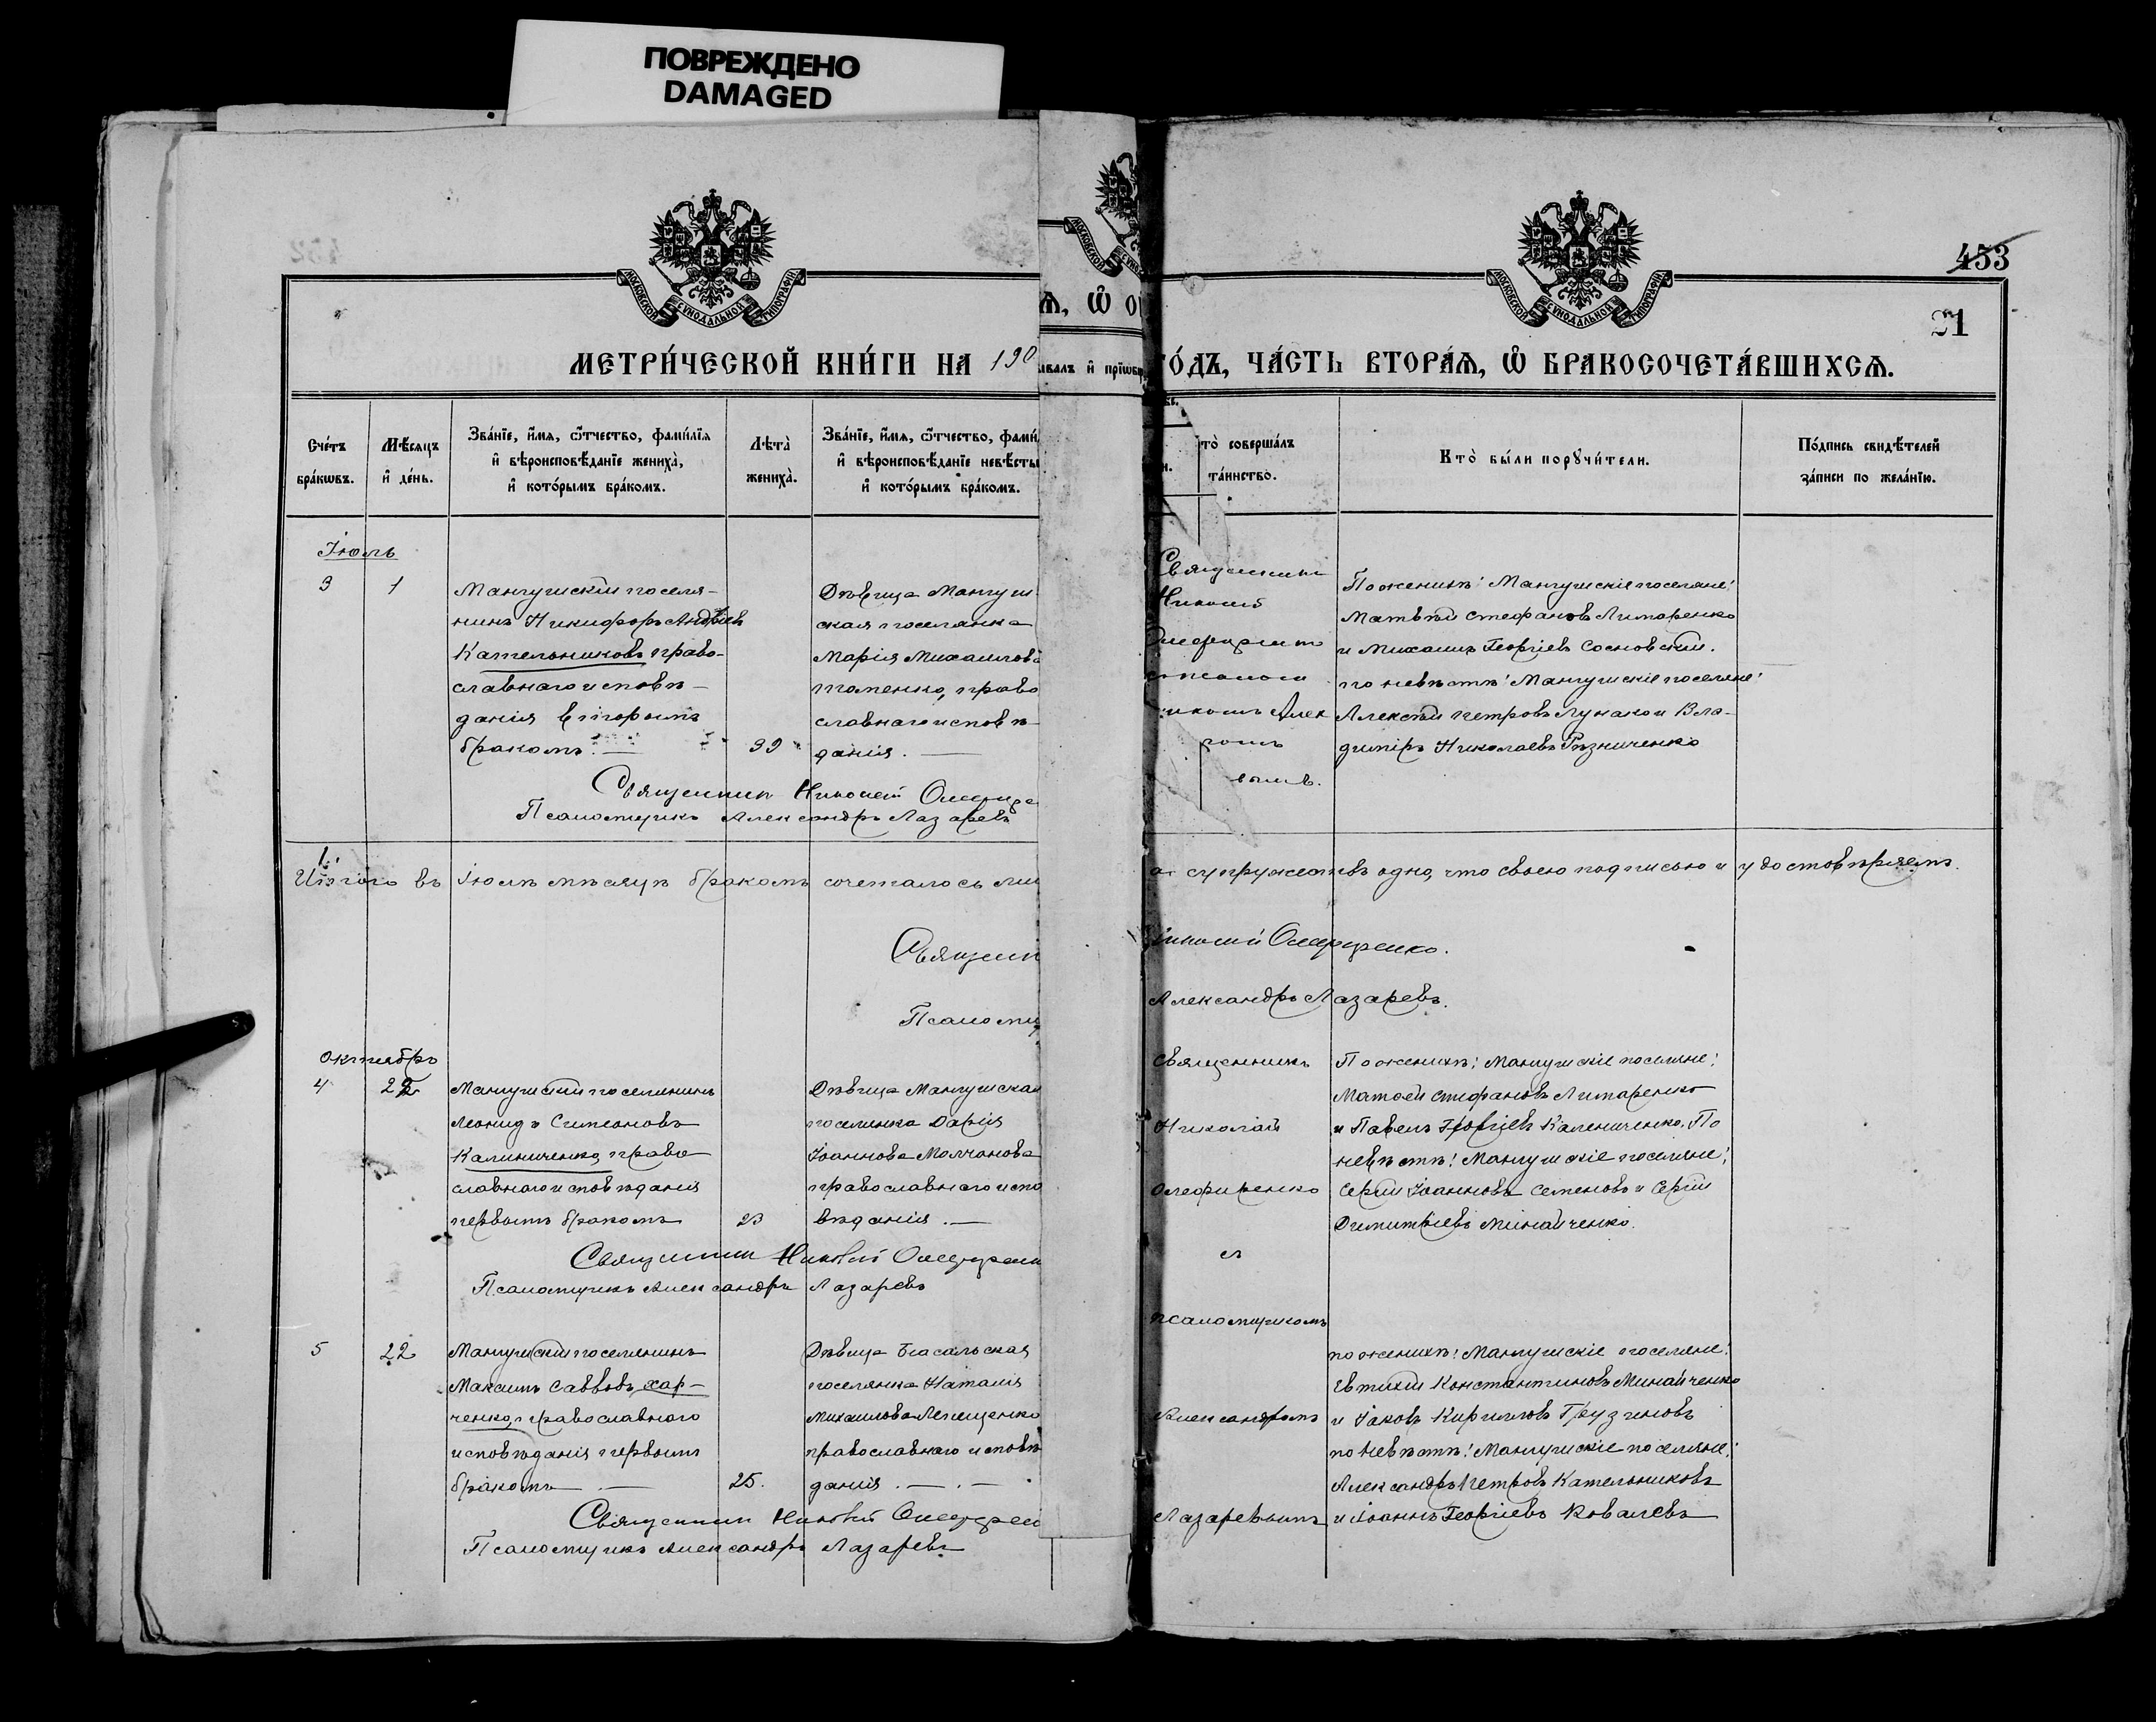 ПОВРЕЖДЕНО
DAMAGED
453
21
МОСКОВСКОЙ СѴНОДАЛЬНОЙ ТИПОГРАФІИ
МОСКОВСКОЙ СѴНОДАЛЬНОЙ ТИПОГРАФІИ
МЕТРИ́ЧЕСКОЙ КНИ́ГИ НА 190
О́ДЪ, ЧА́СТЬ ВТОРА́Ѧ, Ѿ БРАКОСОЧЕТА́ВШИХСѦ.
Сче́тъ
бра́кѡвъ.
Мѣ́сяцъ
и҆ де́нь.
Зва́нїе, и҆́мя, ѻ҆́тчество, фами́лїя
и҆ вѣроисповѣ́данїе жениха̀,
и҆ кото́рымъ бра́комъ.
Лѣта̀
жениха̀.
Зва́нїе, и҆́мя, ѻ҆́тчество, фами́
и҆ вѣроисповѣ́данїе невѣ́сты
и҆ кото́рымъ бра́комъ.
то̀ соверша́лъ
та́инство.
Кто̀ бы́ли порꙋчи́тели.
По́дпись свидѣ́телей
за́писи по жела́нїю.
Іюль
3 1
Мангушскій поселя-
нинъ Никифоръ Андреевъ
Кательниковъ право-
славнаго исповѣ-
данія вторымъ
бракомъ. —
39
Дѣвица Мангуш
ская поселянка
Марія Михаилова
православнаго исповѣ-
данія. —
Священник
Николай
Алек
По женихѣ: Мангушскіе поселяне:
Матвѣй Стефановъ Литаренко
и Михаилъ Георгіевъ Сосновскій.
по невѣстѣ: Мангушскіе поселяне:
Алексѣй Петровъ Лунако и Вла-
диміръ Николаевъ Рѣзниченко
Священник Николай
Псаломщикъ Александръ Лазаревъ
Итого въ Іюлѣ мѣсяцѣ бракомъ сочеталось
супружествъ одно, что своею подписью и удостовѣряемъ.
Священ
Николай Олефиренко.
Псаломщ
Александръ Лазаревъ.
Октябрь
4 22
Мангушскій поселянинъ
Леонидъ Симеоновъ
Калиниченко, право
славнаго исповѣданія
первымъ бракомъ 23
Дѣвица Мангушская
поселянка Дарія
Іоаннова Молчанова
православнаго испо
вѣданія. —
Священникъ
Николай
Олефиренко
съ
псаломщикомъ
Александромъ
Лазаревымъ
По женихѣ: Мангушскіе поселяне:
Матѳей Стефановъ Литаренко
и Павелъ Георгіевъ Калениченко. По
невѣстѣ: Мангушскіе поселяне:
Сергій Іоанновъ Семеновъ и Сергій
Димитріевъ Минайченко.
Священник Николай
Псаломщикъ Александръ Лазаревъ
5 22
Мангушскій поселянинъ
Максимъ Саввовъ Хар-
ченко, православнаго
исповѣданія первымъ
бракомъ — 25.
Дѣвица Біасальская
поселянка Наталія
Михаилова Лепещенко
православнаго исповѣ
данія. — . —
по женихѣ: Мангушскіе поселяне:
Евтихій Константиновъ Минайченко
и Іаковъ Кирилловъ Грузиновъ
по невѣстѣ: Мангушскіе поселяне:
Александръ Петровъ Кательниковъ
и Іоаннъ Георгіевъ Ковалевъ
Священник Николай
Псаломщикъ Александръ Лазаревъ